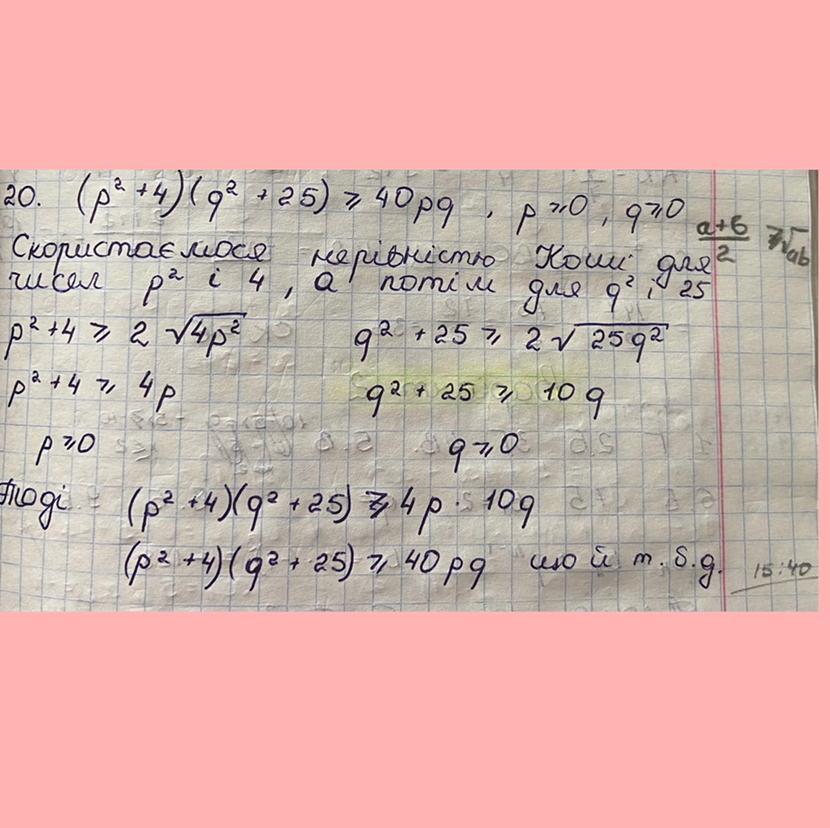 20. (p² + 4)(q² + 25) ≥ 40pq, p ≥ 0, q ≥ 0
(a+b)/2 ≥ √ab
Скористаємося нерівністю Коші для
чисел p² і 4, а потім для q² і 25
p² + 4 ≥ 2√4p² q² + 25 ≥ 2√25q²
p² + 4 ≥ 4p q² + 25 ≥ 10q
p ≥ 0 q ≥ 0
Тоді (p² + 4)(q² + 25) ≥ 4p · 10q
(p² + 4)(q² + 25) ≥ 40pq що й т.б.д.
15:40